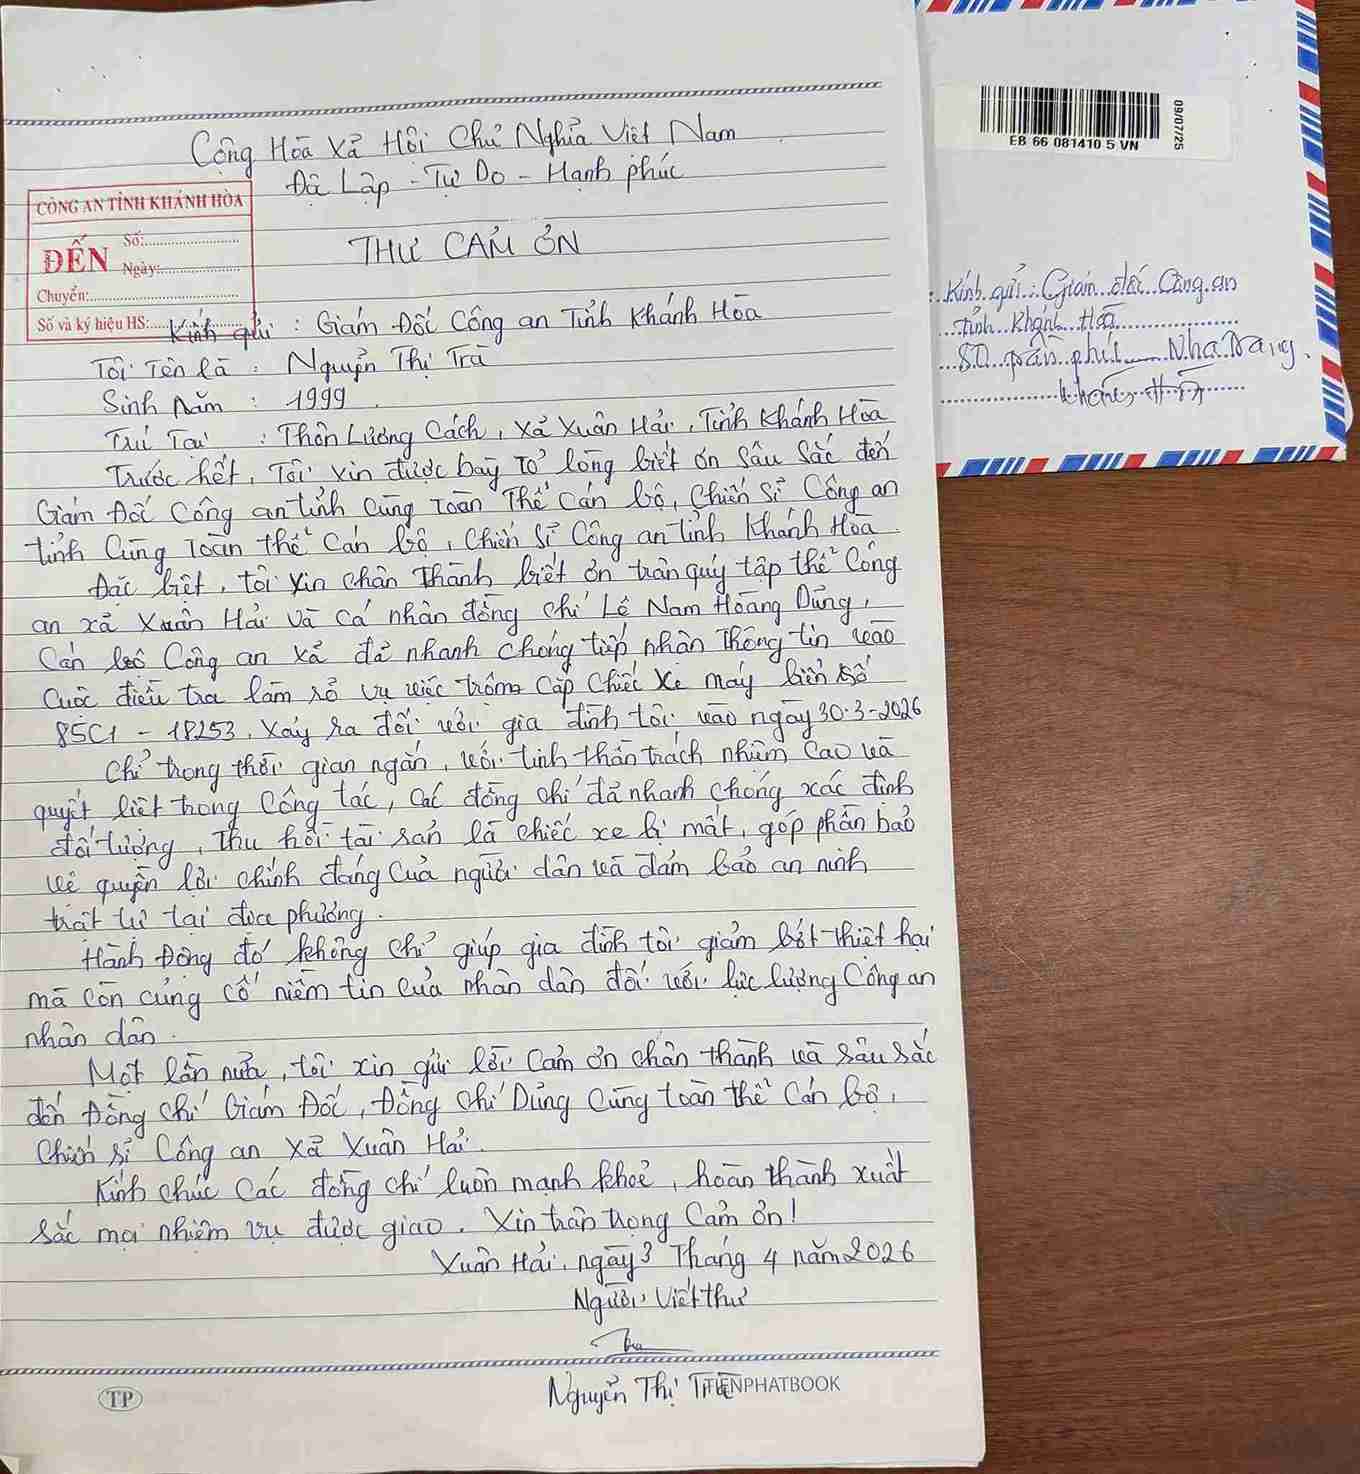 Cộng Hòa Xả Hội Chủ Nghĩa Việt Nam
Độc Lập - Tự Do - Hạnh phúc
CÔNG AN TỈNH KHÁNH HÒA
ĐẾN
Số:
Ngày:
Chuyển:
Số và ký hiệu HS:
THƯ CẢM ƠN
Kính gửi : Giám Đốc Công an Tỉnh Khánh Hòa
Tôi Tên là : Nguyễn Thị Trà
Sinh Năm : 1999
Trú Tại : Thôn Lương Cách, xả Xuân Hải, Tỉnh Khánh Hòa
Trước hết, Tôi xin được bày tỏ lòng biết ơn sâu sắc đến
Giám Đốc Công an tỉnh cùng toàn Thể Cán bộ, Chiến sỉ Công an
tỉnh Cùng toàn thể Cán bộ, Chiến sỉ Công an tỉnh Khánh Hòa
Đặc biệt, tôi xin chân thành biết ơn trân quý tập thể Công
an xả Xuân Hải và cá nhân đồng chí Lê Nam Hoàng Dủng,
Cán bộ Công an xả đả nhanh chóng tiếp nhận thông tin vào
cuộc điều tra làm rỏ vụ việc trộm cắp chiếc xe máy biển số
85C1 - 18253. Xảy ra đối với gia đình tôi vào ngày 30-3-2026
Chỉ trong thời gian ngắn, với tinh thần trách nhiệm cao và
quyết liệt trong công tác, các đồng chí đả nhanh chóng xác định
đối tượng, thu hồi tài sản là chiếc xe bị mất, góp phần bảo
vệ quyền lợi chính đáng của người dân và đảm bảo an ninh
trật tự tại địa phương.
Hành động đó không chỉ giúp gia đình tôi giảm bớt thiệt hại
mà còn củng cố niềm tin của nhân dân đối với lực lượng Công an
nhân dân.
Một lần nửa, tôi xin gửi lời cảm ơn chân thành và sâu sắc
đến Đồng chí Giám Đốc, Đồng chí Dủng cùng toàn thể cán bộ,
Chiến sỉ Công an xả Xuân Hải.
Kính chúc các đồng chí luôn mạnh khoẻ, hoàn thành xuất
sắc mọi nhiệm vụ được giao. Xin trân trọng cảm ơn!
Xuân Hải, ngày 3 Tháng 4 năm 2026
Người Viết thư
Nguyễn Thị Trà
TIENPHATBOOK
TP
09/07/25
EB 66 081410 5 VN
Kính gửi: Giám đốc Công an
tỉnh Khánh Hòa
80 trần phú Nha Trang
Khánh Hòa